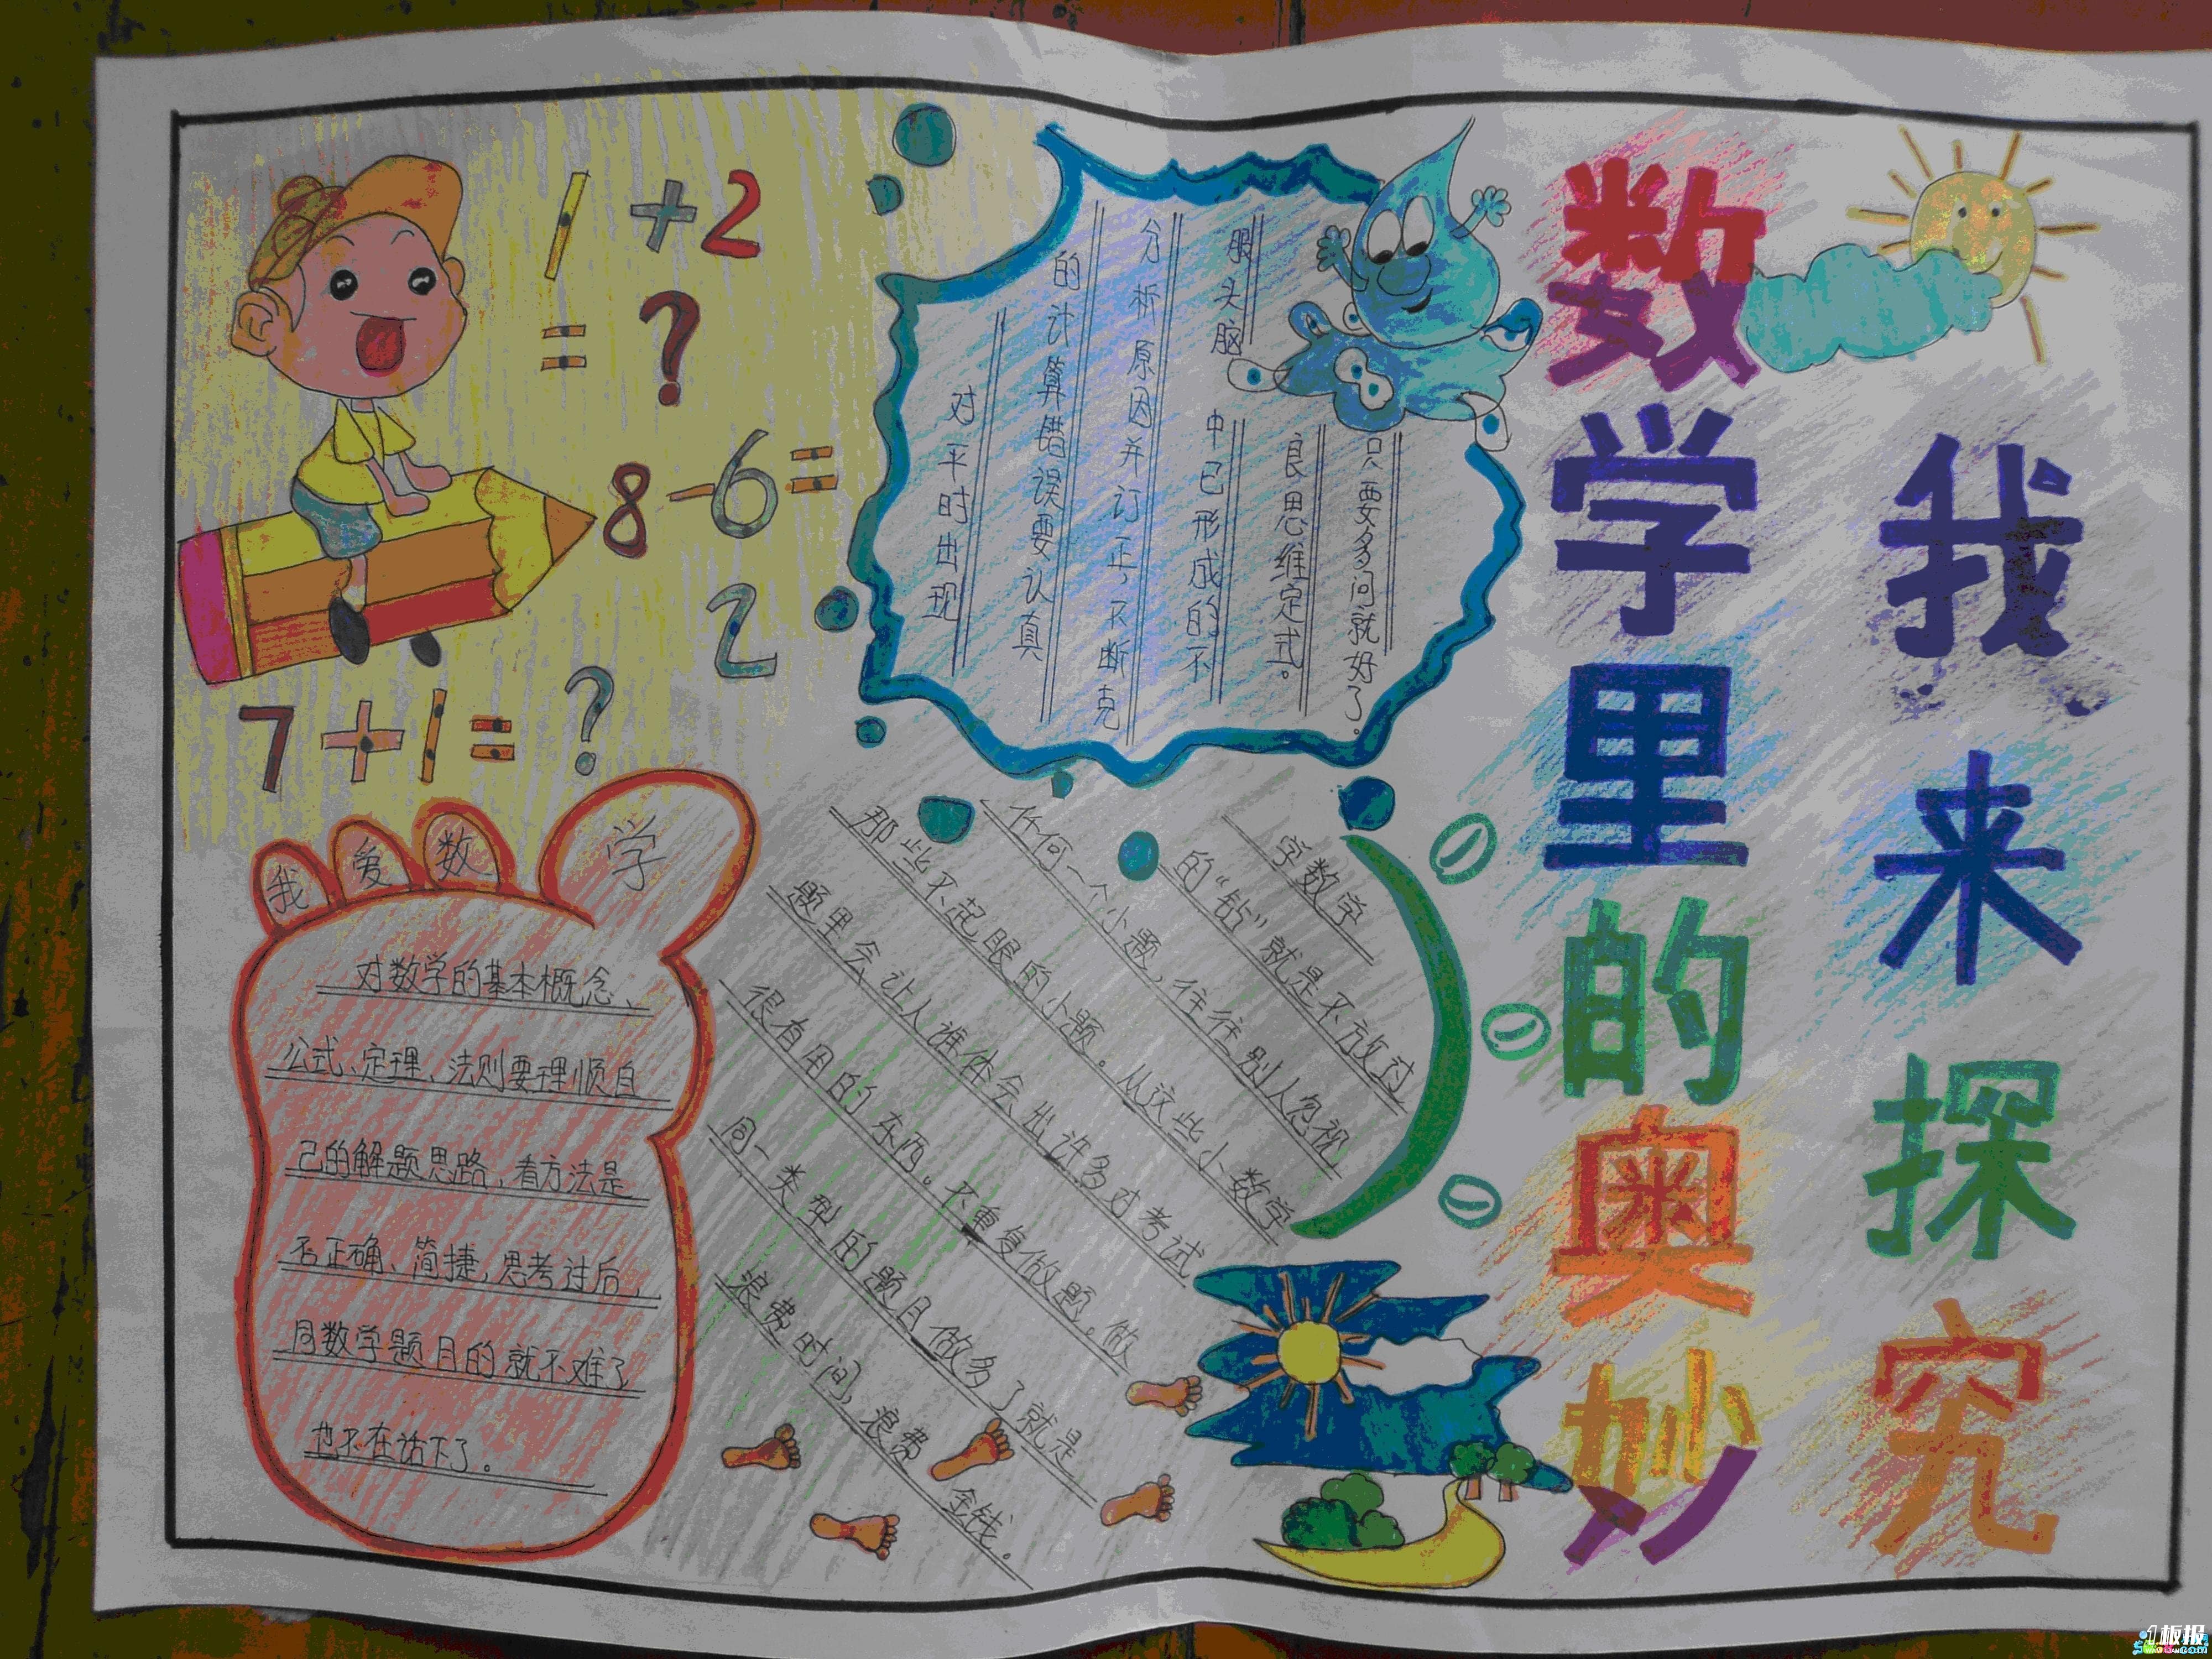 我来探究
数学里的奥妙
1+2
=?
8-6=
2
7+1=?
对平时出现
的计算错误要认真
分析原因并订正,不断克
服头脑中已形成的不
良思维定式。
只要多问就好了.
我爱数学
对数学的基本概念、
公式、定理、法则要理顺自
己的解题思路,看方法是
否正确、简捷,思考过后,
同数学题目的就不难了
也不在话下了。
学数学
的“钻”就是不放过
任何一个小题,往往别人忽视
那些不起眼的小题。从这些小数学
题里会让人谁体会出许多对考试
很有用的东西。不重复做题。做
同一类型的题目做多了就是
浪费时间,浪费金钱。
1板报